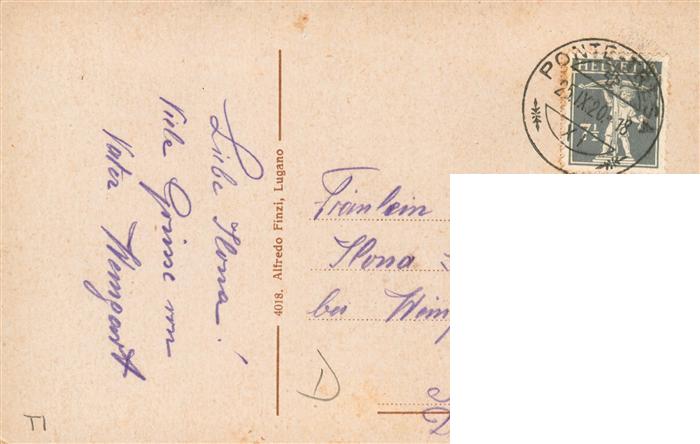 Liebe Ilona!
Viele Grüsse von
Vater Wemgartt
4018. Alfredo Finzi, Lugano
PONTE
25.IX.20.-18
XI
HELVETIA
7½
Fräulein
Ilona
bei
D
TI